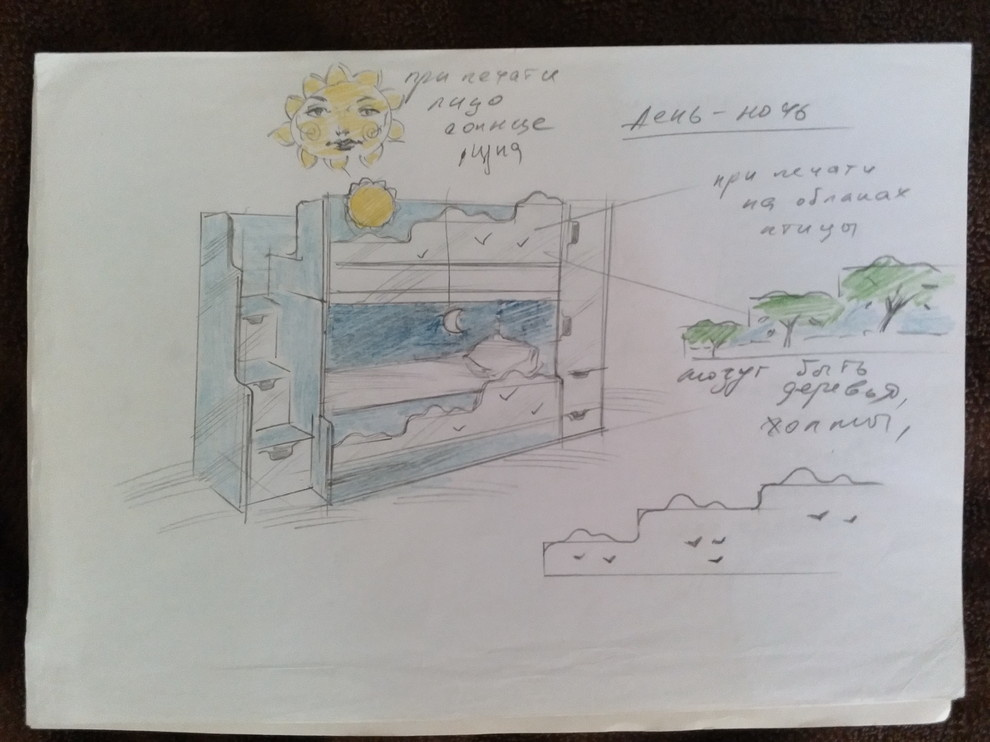 при печати
лицо
солнце
День - ночь
при печати
на облаках
птицы
могут быть
деревья,
холмы,